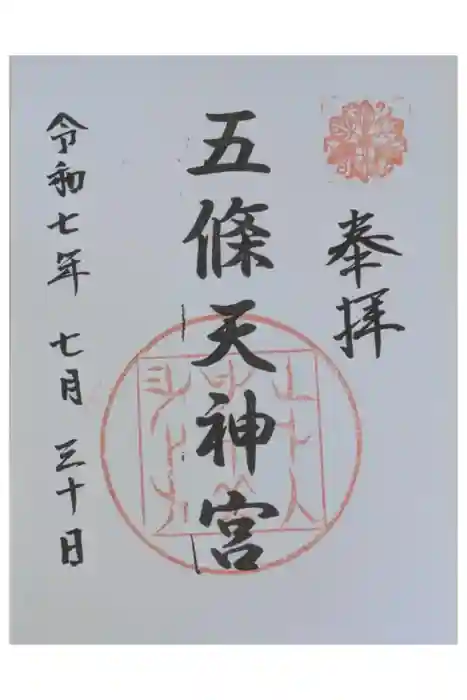 奉拝
五條天神宮
令和七年 七月 三十日